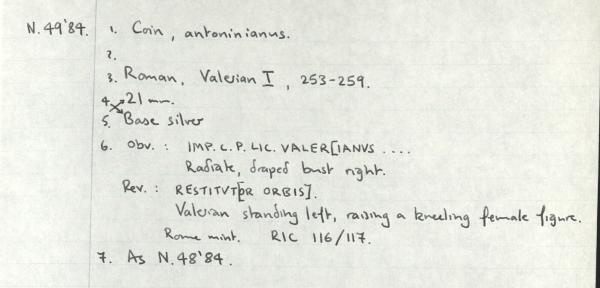 N.49'84. 1. Coin, antoninianus.
2.
3. Roman, Valerian I, 253-259.
4. 21 mm.
5. Base silver
6. Obv. : IMP. C. P. LIC. VALER[IANVS ....
Radiate, draped bust right.
Rev. : RESTITVT[OR ORBIS].
Valerian standing left, raising a kneeling female figure.
Rome mint. RIC 116/117.
7. As N.48'84.